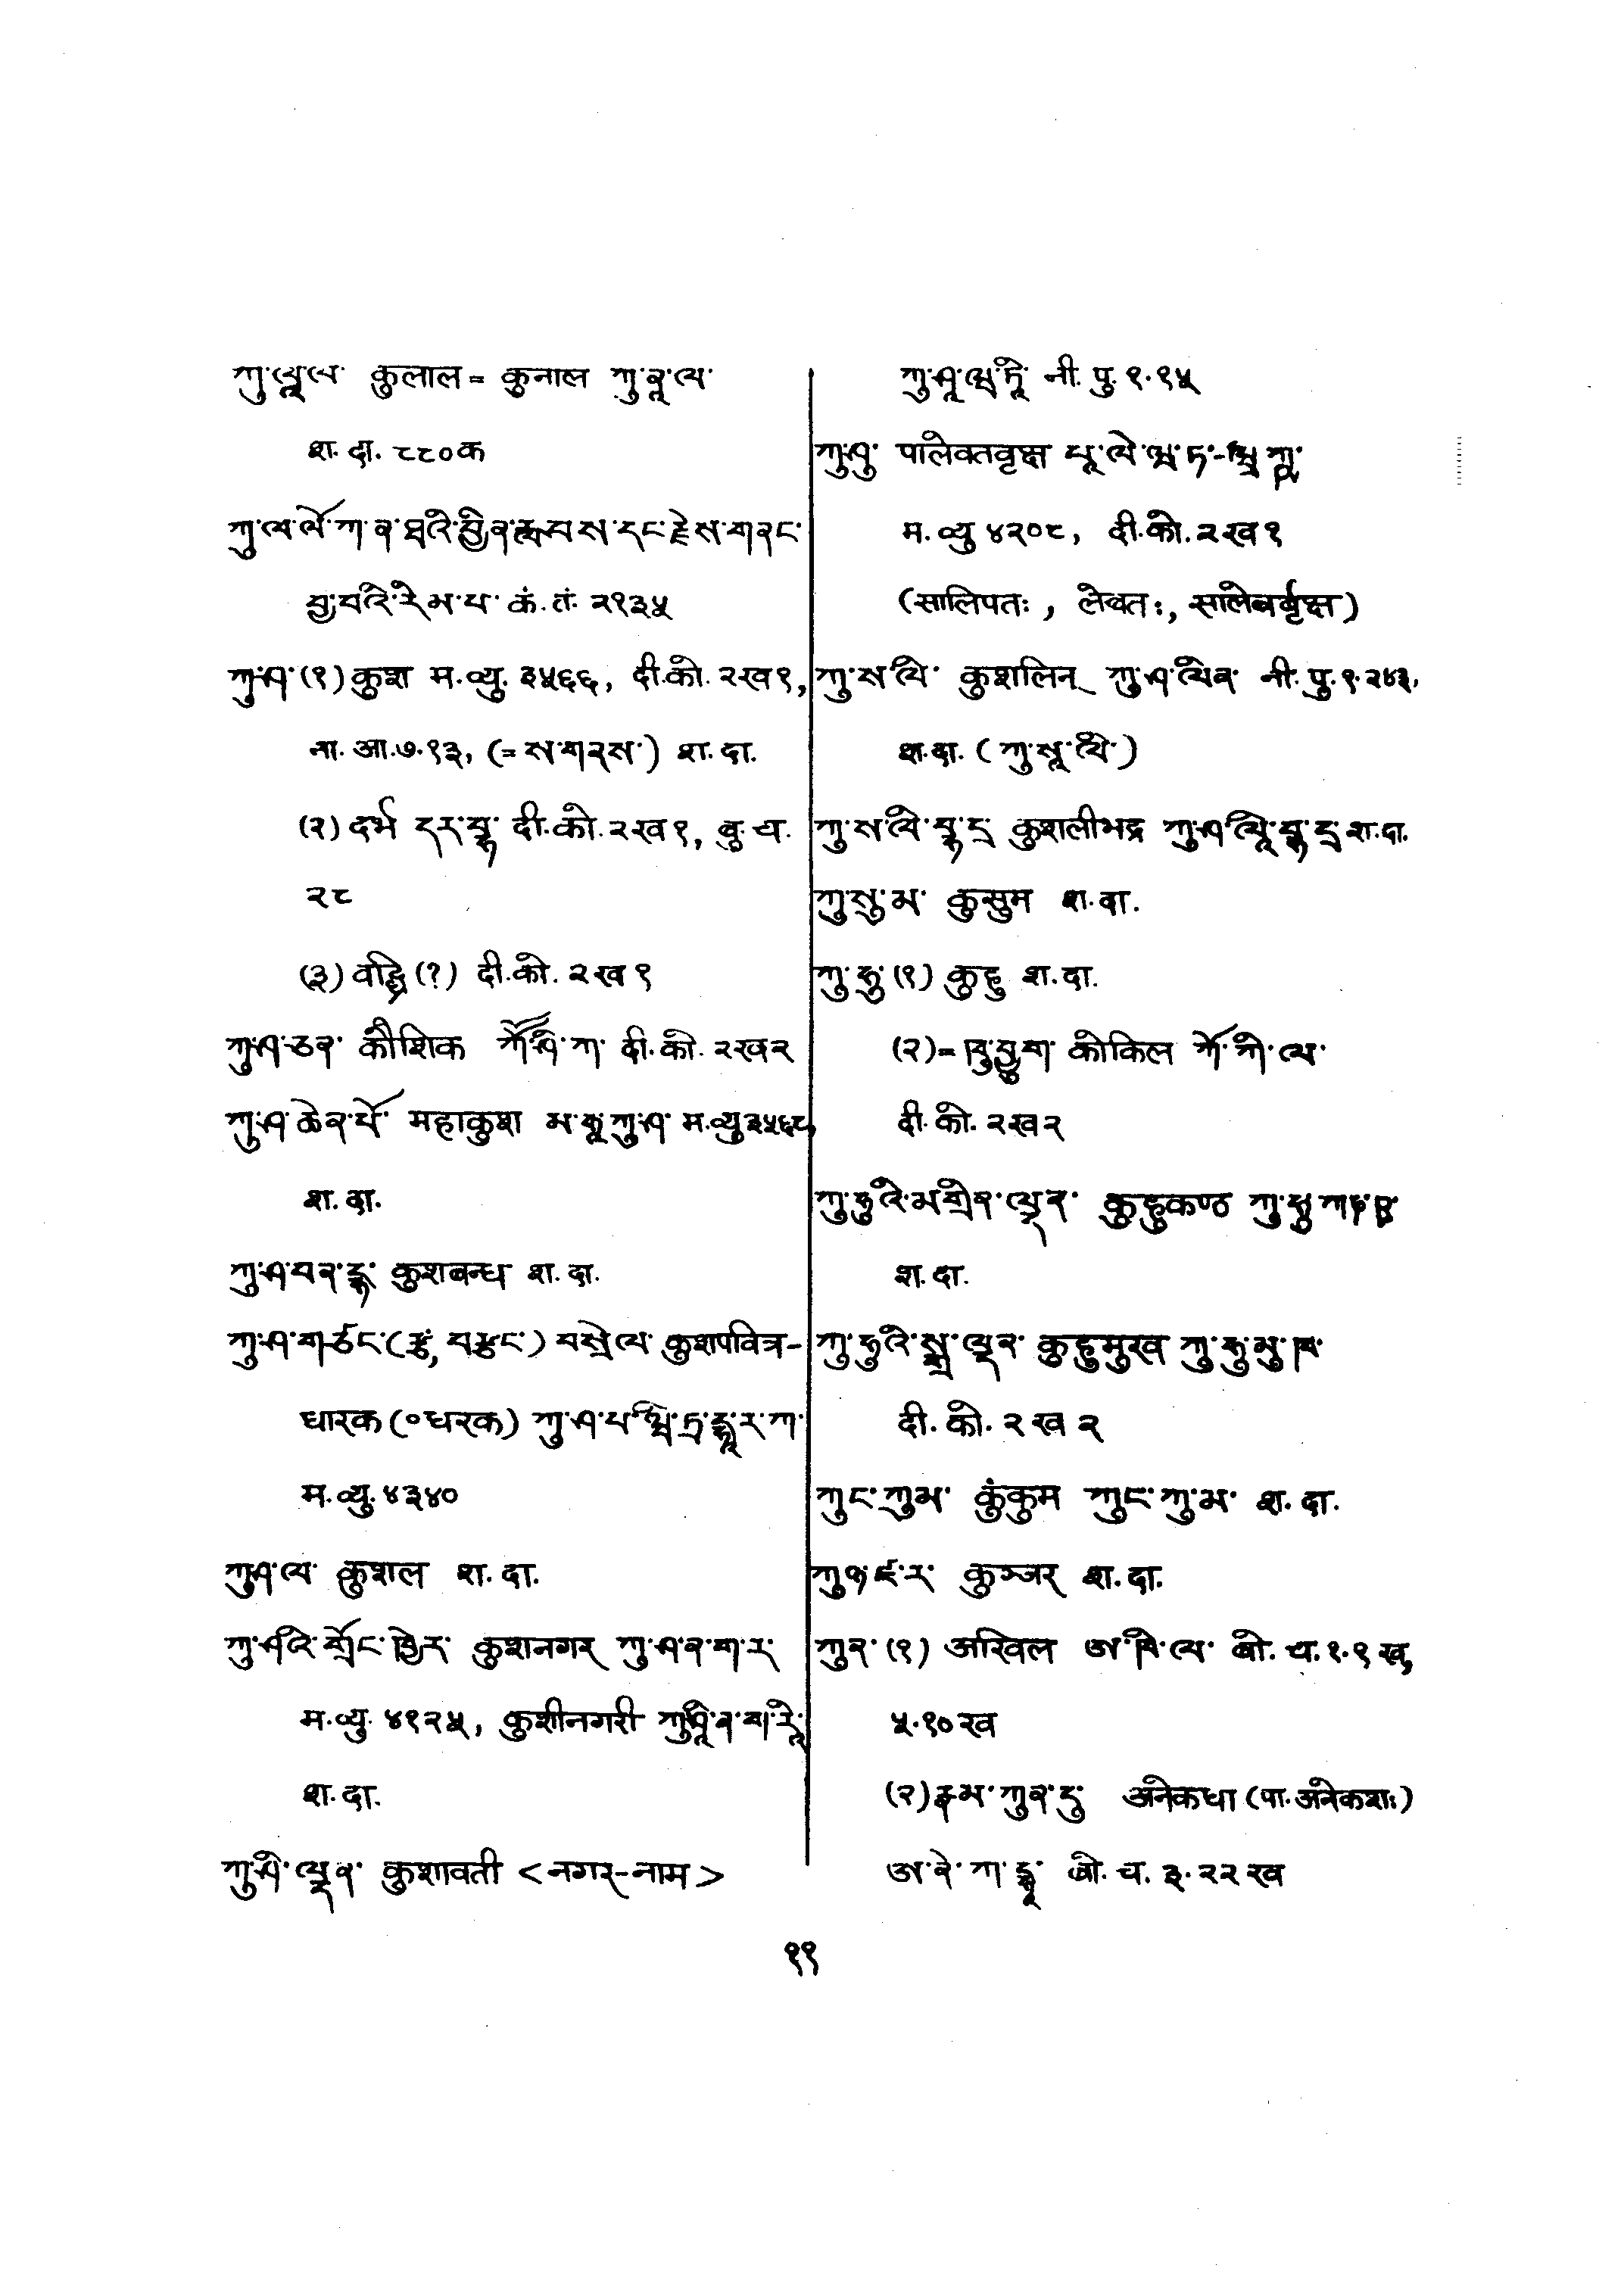 ཀུ་ལཱ་ལ་ कुलाल = कुनाल ཀུ་ནཱ་ལ་
श. दा. ८८०क
ཀུ་ལ་ལོ་ཀ་ན་ཐའི་བྱིན་རླབས་དང་རྗེས་གནང་
བྱ་བའི་རིམ་པ་ कं. तं. २१३५
ཀུ་ཤ་ (१) कुश म. व्यु. ३५६६, दी.को. २ख१,
ना. आ.७.१३, (= ས་གནས་) श. दा.
(२) दर्भ དར་བྷ་ दी.को. २ख१, बु. च.
२८
(३) वह्नि (?) दी.को. २ख१
ཀུ་ཤ་ཅན་ कौशिक ཀཽ་ཤི་ཀ་ दी.को. २ख२
ཀུ་ཤ་ཆེན་པོ་ महाकुश མ་ཧཱ་ཀུ་ཤ་ म.व्यु ३५६८,
श. दा.
ཀུ་ཤ་བན་དྷ་ कुशबन्ध श. दा.
ཀུ་ཤ་གཙང་(རྩ, བརྩང་) བསྲེལ་ कुशपवित्र-
धारक (०धरक) ཀུ་ཤ་པ་ཝི་ཏྲ་དྷཱ་ར་ཀ་
म. व्यु. ४३४०
ཀུ་ཤ་ལ་ कुशल श. दा.
ཀུ་ཤའི་གྲོང་ཁྱེར་ कुशनगर ཀུ་ཤ་ན་ག་ར་
म. व्यु. ४१२५, कुशीनगरी ཀུ་ཤཱི་ན་ག་རཱི་
श. दा.
ཀུ་ཤི་ལྡན་ कुशावती <नगर-नाम>
ཀུ་ཤཱ་ཝ་ཏཱི་ नी. पु. १.१५
ཀུ་ཤུ་ पालेवतवृक्ष པཱ་ལེ་ཝ་ཏ་ཝྲྀཀྵ་
म. व्यु ४२०८, दी.को. २ख१
(सालिपतः, लेवतः, सालेवर्वृक्ष)
ཀུ་ས་ལི་ कुशलिन् ཀུ་ཤ་ལིན་ नी. पु. १.२४३,
श. दा. (ཀུ་སཱ་ལི་)
ཀུ་ས་ལི་བྷ་དྲ་ कुशलीभद्र ཀུ་ཤ་ལཱི་བྷ་དྲ་ श. दा.
ཀུ་སུ་མ་ कुसुम श. दा.
ཀུ་ཧུ་ (१) कुहु श. दा.
(२) = ཁུ་བྱུག་ कोकिल ཀོ་ཀི་ལ་
दी.को. २ख२
ཀུ་ཧུའི་མགྲིན་ལྡན་ कुहुकण्ठ ཀུ་ཧུ་ཀཎྛ་
श. दा.
ཀུ་ཧུའི་སྒྲ་ལྡན་ कुहुमुख ཀུ་ཧུ་མུ་ཁ་
दी. को. २ ख २
ཀུང་ཀུམ་ कुंकुम ཀུང་ཀུ་མ་ श. दा.
ཀུཉ་ཛ་ར་ कुञ्जर श. दा.
ཀུན་ (१) अखिल ཨ་ཁི་ལ་ बो. च. १.९ख,
५.१०ख
(२) རྣམ་ཀུན་དུ་ अनेकधा (पा. अनेकशः)
ཨ་ནེ་ཀ་དྷཱ་ बो. च. ३.२२ख
१९